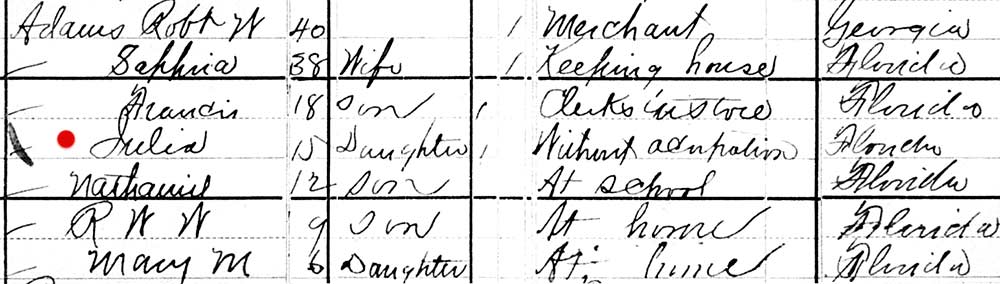 Adams Robt W 40 1 Merchant Georgia
— Saphria 38 Wife 1 Keeping house Florida
— Francis 18 Son 1 Clerks in store Florida
— Julia 15 Daughter 1 Without Florida
— Nathaniel 12 Son At school Florida
— R W W 9 Son At home Florida
— Mary M 6 Daughter At home Florida